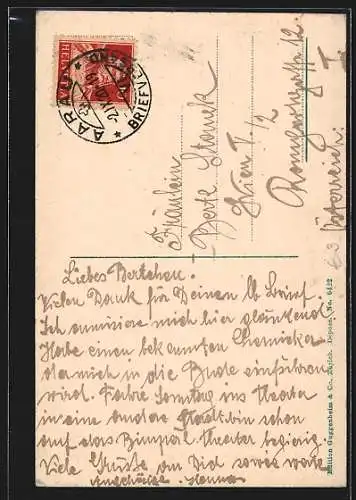 HELVETIA
AARAU
BRIEFVERSAND
Fräulein
Berte
Wien I. 1/2
12.
Österreich.
Liebes Bertchen.
Vielen Dank für Deinen lb Brief.
Ich amüsiere mich hier glänzend.
Habe einen bekannten Chemiker
da mich in die Bude einführen
wird. Fahre Sonntag ins Theater
in eine andere Stadt. bin schon
auf das Theater begierig.
Viele Grüsse an Dich sowie werte
Angehörige.
Edition Guggenheim & Co., Zürich. Dépose. No. 6432